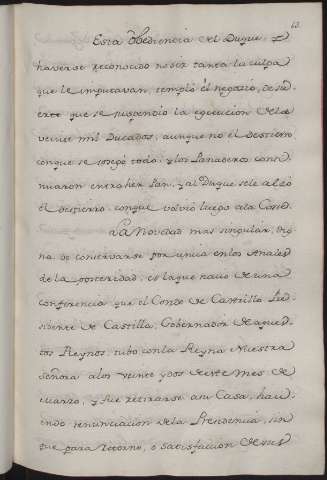 13.
Esta obediencia del Duque y
haverse reconocido no ser tanta la culpa
que le imputavan, templò el negocio, de su
erte que se suspendio la egecucion de los
veinte mil Ducados, aunque no el destierro
conque se sosegò todo: y los Panaderos conti
nuaron en traher Pan, y al Duque se le alzò
el destierro, conque volviò luego a la Corte.
La Novedad mas singular, dig
na de conservarse por unica en los Anales
de la posteridad, es la que naciò de una
conferencia que el Conde de Castrillo Pre
sidente de Castilla, Gobernador de aques
tos Reynos, tubo con la Reyna Nuestra
Señora a los veinte y dos de este Mes de
Marzo, y fue retirarse a su Casa, haci
endo renunciacion de la Presidencia, sin
que para retorno, ò satisfaccion de sus